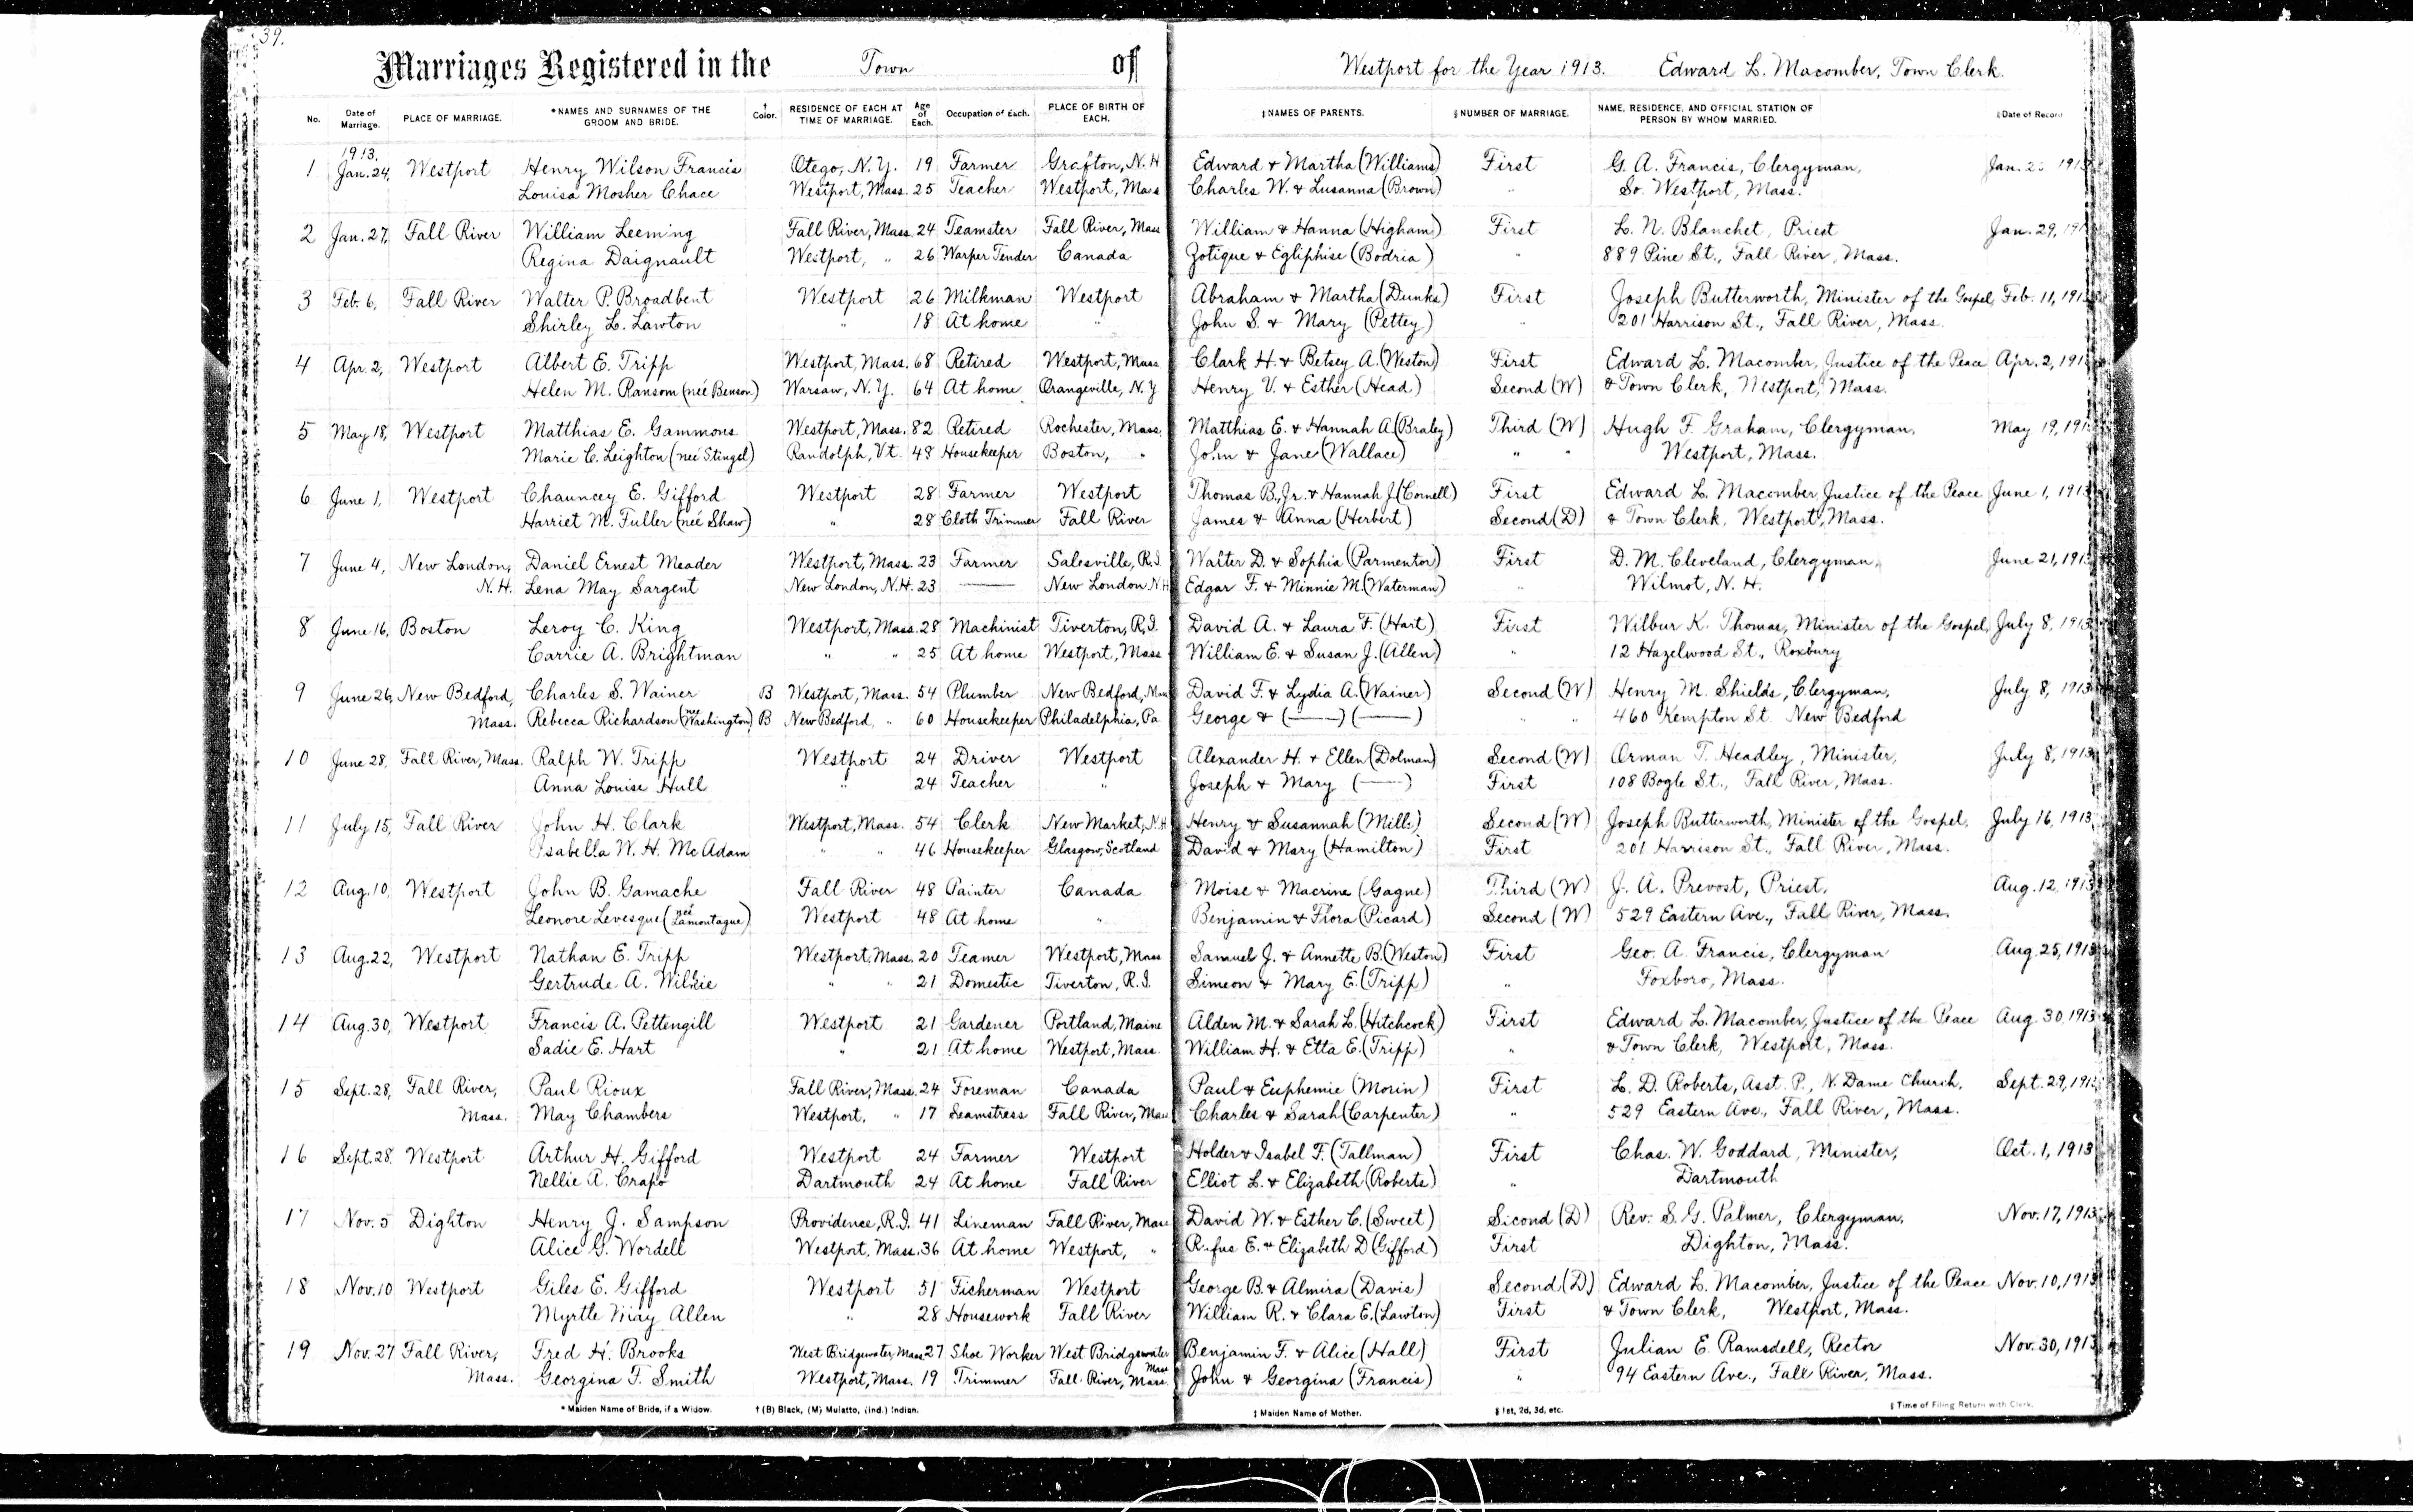 39.
Marriages Registered in the Town of Westport for the Year 1913. Edward L. Macomber, Town Clerk.
No. Date of Marriage. PLACE OF MARRIAGE. *NAMES AND SURNAMES OF THE GROOM AND BRIDE. † Color. RESIDENCE OF EACH AT TIME OF MARRIAGE. Age of Each. Occupation of Each. PLACE OF BIRTH OF EACH. ‡NAMES OF PARENTS. §NUMBER OF MARRIAGE. NAME, RESIDENCE, AND OFFICIAL STATION OF PERSON BY WHOM MARRIED. ‖Date of Record
1913.
1 Jan. 24, Westport Henry Wilson Francis Otego, N.Y. 19 Farmer Grafton, N.H Edward & Martha (Williams) First G. A. Francis, Clergyman, Jan. 191
Louisa Mosher Chace Westport, Mass. 25 Teacher Westport, Mass Charles W. & Lusanna (Brown) " So. Westport, Mass.
2 Jan. 27, Fall River William Leeming Fall River, Mass. 24 Teamster Fall River, Mass William & Hanna (Higham) First L. N. Blanchet, Priest Jan. 29, 191
Regina Daignault Westport, " 26 Warper Tender Canada Zotique & Egliphise (Bodria) " 889 Pine St., Fall River, Mass.
3 Feb. 6, Fall River Walter P. Broadbent Westport 26 Milkman Westport Abraham & Martha (Dunks) First Joseph Butterworth, Minister of the Gospel, Feb. 11, 1913
Shirley L. Lawton " 18 At home " John S. & Mary (Pettey) " 201 Harrison St., Fall River, Mass.
4 Apr. 2, Westport Albert E. Tripp Westport, Mass. 68 Retired Westport, Mass Clark H. & Betsey A. (Weston) First Edward L. Macomber, Justice of the Peace Apr. 2, 191
Helen M. Ransom (neé Benson) Warsaw, N.Y. 64 At home Orangeville, N.Y Henry V. & Esther (Head) Second (W) & Town Clerk, Westport, Mass.
5 May 18, Westport Matthias E. Gammons Westport, Mass. 82 Retired Rochester, Mass. Matthias E. & Hannah A (Braley) Third (W) Hugh F. Graham, Clergyman, May 19, 191
Marie C. Leighton (neé Stingel) Randolph, Vt. 48 Housekeeper Boston, " John & Jane (Wallace) " " Westport, Mass.
6 June 1, Westport Chauncey E. Gifford Westport 28 Farmer Westport Thomas B., Jr. & Hannah J. (Cornell) First Edward L. Macomber, Justice of the Peace June 1, 1913
Harriet M. Fuller (neé Shaw) " 28 Cloth Trimmer Fall River James & Anna (Herbert) Second (D) & Town Clerk, Westport, Mass.
7 June 4, New London, Daniel Ernest Meader Westport, Mass. 23 Farmer Salesville, R.I. Walter D. & Sophia (Parmentor) First D. M. Cleveland, Clergyman, June 21, 1913
N.H. Lena May Sargent New London, N.H. 23 —— New London N.H Edgar F. & Minnie M. (Waterman) " Wilmot, N.H.
8 June 16, Boston Leroy C. King Westport, Mass. 28 Machinist Tiverton, R.I. David A. & Laura F. (Hart) First Wilbur K. Thomas, Minister of the Gospel, July 8, 1913
Carrie A. Brightman " " 25 At home Westport, Mass William E. & Susan J. (Allen) " 12 Hazelwood St., Roxbury
9 June 26, New Bedford, Charles S. Wainer B Westport, Mass. 54 Plumber New Bedford, Mass David F. & Lydia A. (Wainer) Second (W) Henry M. Shields, Clergyman, July 8, 1913
Mass. Rebecca Richardson (neé Washington) B New Bedford, " 60 Housekeeper Philadelphia, Pa George & (——) (——) " " 460 Kempton St. New Bedford
10 June 28, Fall River, Mass. Ralph W. Tripp Westport 24 Driver Westport Alexander H. & Ellen (Dolman) Second (W) Orman T. Headley, Minister, July 8, 1913
Anna Louise Hull " 24 Teacher " Joseph & Mary (——) First 108 Bogle St., Fall River, Mass.
11 July 15, Fall River John H. Clark Westport, Mass. 54 Clerk New Market, N.H Henry & Susannah (Mill) Second (W) Joseph Butterworth, Minister of the Gospel, July 16, 1913
Isabella W. H. McAdam " " 46 Housekeeper Glasgow, Scotland David & Mary (Hamilton) First 201 Harrison St., Fall River, Mass.
12 Aug. 10, Westport John B. Gamache Fall River 48 Painter Canada Moise & Macrine (Gagne) Third (W) J. A. Prevost, Priest. Aug. 12, 1913
Leonore Levesque (neé Lamontague) Westport 48 At home " Benjamin & Flora (Picard) Second (W) 529 Eastern Ave., Fall River, Mass.
13 Aug. 22, Westport Nathan E. Tripp Westport, Mass. 20 Teamer Westport, Mass Samuel J. & Annette B. (Weston) First Geo. A. Francis, Clergyman Aug. 25, 1913
Gertrude A. Wilkie " " 21 Domestic Tiverton, R.I. Simeon & Mary E. (Tripp) " Foxboro, Mass.
14 Aug. 30, Westport Francis A. Pettengill Westport 21 Gardener Portland, Maine Alden M. & Sarah L. (Hitchcock) First Edward L. Macomber, Justice of the Peace Aug. 30, 1913
Sadie E. Hart " 21 At home Westport, Mass. William H. & Etta E. (Tripp) " & Town Clerk, Westport, Mass.
15 Sept. 28, Fall River, Paul Rioux Fall River, Mass. 24 Foreman Canada Paul & Euphemie (Morin) First L. D. Roberts, Asst. P., N. Dame Church, Sept. 29, 191
Mass. May Chambers Westport, " 17 Seamstress Fall River, Mass Charles & Sarah (Carpenter) " 529 Eastern Ave., Fall River, Mass.
16 Sept. 28, Westport Arthur H. Gifford Westport 24 Farmer Westport Holder & Isabel F. (Tallman) First Chas. W. Goddard, Minister, Oct. 1, 1913
Nellie A. Crapo Dartmouth 24 At home Fall River Elliot L. & Elizabeth (Roberts) " Dartmouth
17 Nov. 5 Dighton Henry J. Sampson Providence, R.I. 41 Lineman Fall River, Mass David W. & Esther C. (Sweet) Second (D) Rev. S. G. Palmer, Clergyman, Nov. 17, 1913
Alice G. Wordell Westport, Mass. 36 At home Westport, " Rufus E. & Elizabeth D (Gifford) First Dighton, Mass.
18 Nov. 10 Westport Giles E. Gifford Westport 51 Ficherman Westport George B. & Almira (Davis) Second (D) Edward L. Macomber, Justice of the Peace Nov. 10, 1913
Myrtle May Allen " 28 Housework Fall River William R. & Clara E. (Lawton) First & Town Clerk, Westport, Mass.
19 Nov. 27 Fall River, Fred H. Brooks West Bridgewater, Mass 27 Shoe Worker West Bridgewater Mass Benjamin F. & Alice (Hall) First Julian E. Ramsdell, Rector Nov. 30, 1913
Mass. Georgina F. Smith Westport, Mass. 19 Trimmer Fall River, Mass. John & Georgina (Francis) " 94 Eastern Ave., Fall River, Mass.
* Maiden Name of Bride, if a Widow. † (B) Black, (M) Mulatto, (Ind.) Indian. ‡ Maiden Name of Mother. § 1st, 2d, 3d, etc. ‖ Time of Filing Return with Clerk.